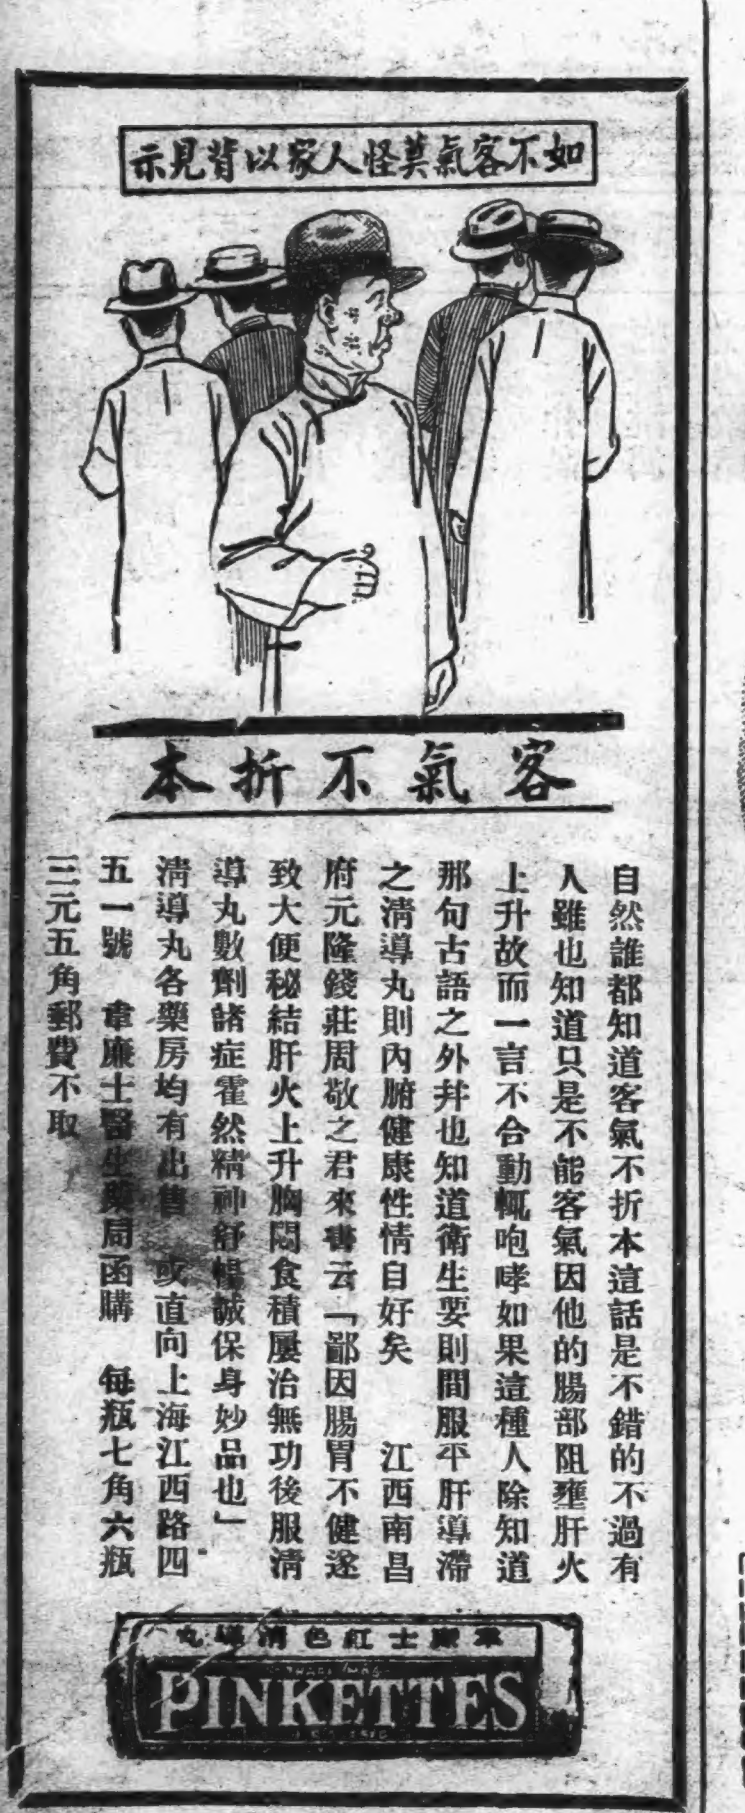 如不客氣莫怪人家以背見示
客氣不折本
自然誰都知道客氣不折本這話是不錯的不過有
人雖也知道只是不能客氣因他的腸部阻壅肝火
上升故而一言不合動輒咆哮如果這種人除知道
那句古語之外幷也知道衛生要則間服平肝導滯
之淸導丸則內腑健康性情自好矣　江西南昌
府元隆錢莊周敬之君來書云「鄙因腸胃不健遂
致大便秘結肝火上升胸悶食積屢治無功後服淸
導丸數劑諸症霍然精神舒暢誠保身妙品也」
淸導丸各藥房均有出售　或直向上海江西路四
五一號　韋廉士醫生藥局函購　每瓶七角六瓶
三元五角郵費不取
韋廉士紅色淸導丸
PINKETTES